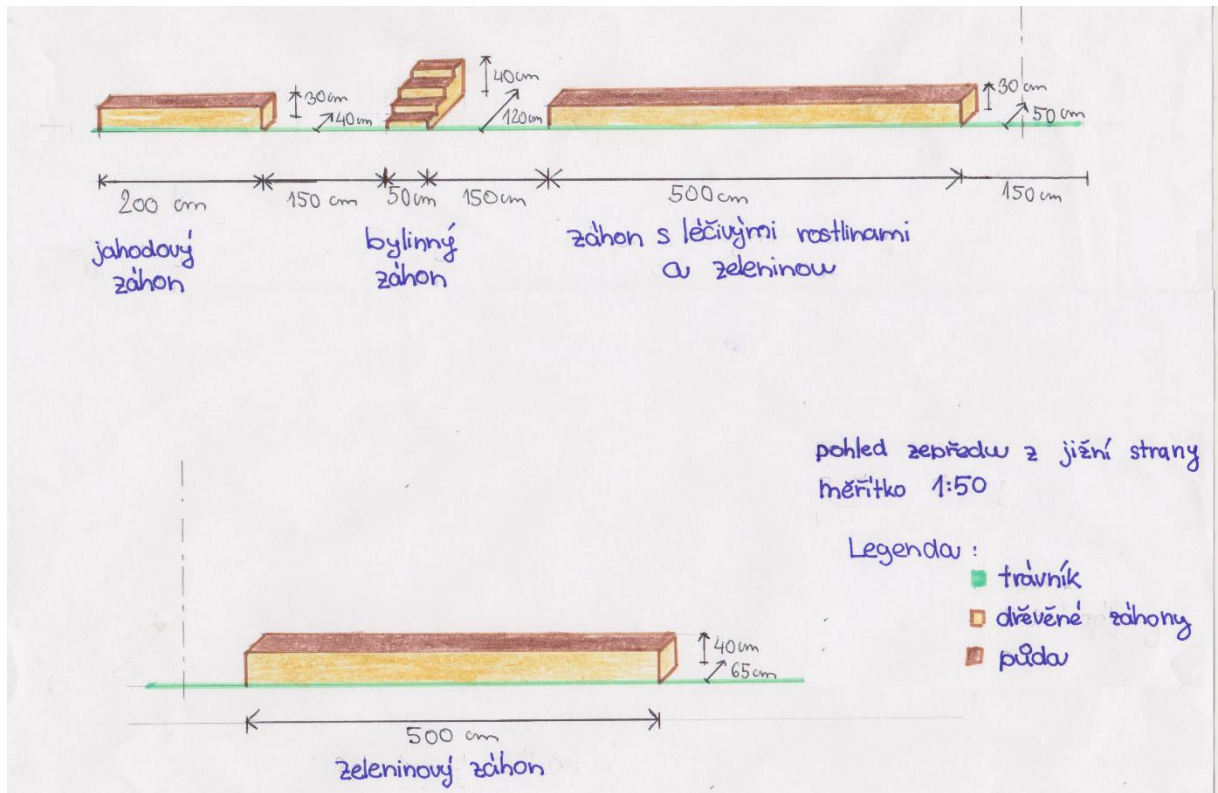 30cm
40cm
40cm
120cm
30cm
50 cm
200 cm
150 cm
50cm
150cm
500cm
150 cm
jahodový
záhon
bylinný
záhon
záhon s léčivými rostlinami
a zeleninou
pohled zepředu z jižní strany
měřítko 1:50
Legenda :
trávník
dřevěné záhony
půda
40cm
65cm
500 cm
zeleninový záhon